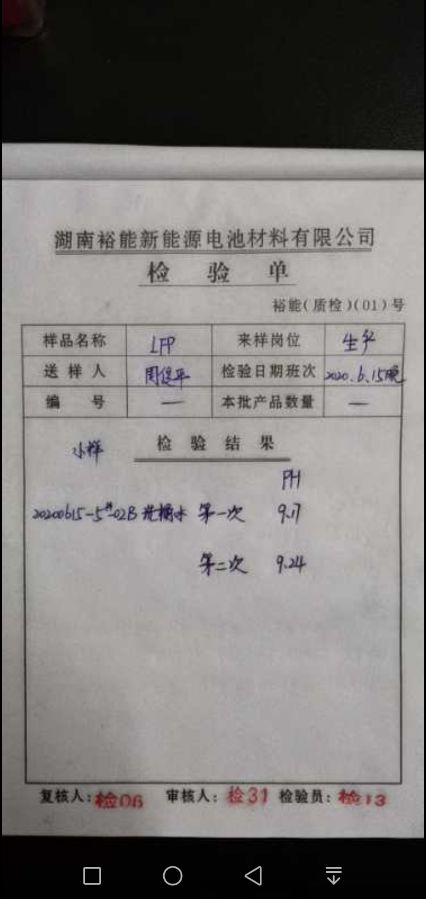 湖南裕能新能源电池材料有限公司
检验单
裕能(质检)(01)号
样品名称 LFP 来样岗位 生产
送样人 周俊平 检验日期班次 2020.6.15晚
编号 — 本批产品数量 —
小样 检验结果
PH
20200615-5#-02B 洗桶水 第一次 9.17
第二次 9.24
复核人:检06 审核人:检31 检验员:检13